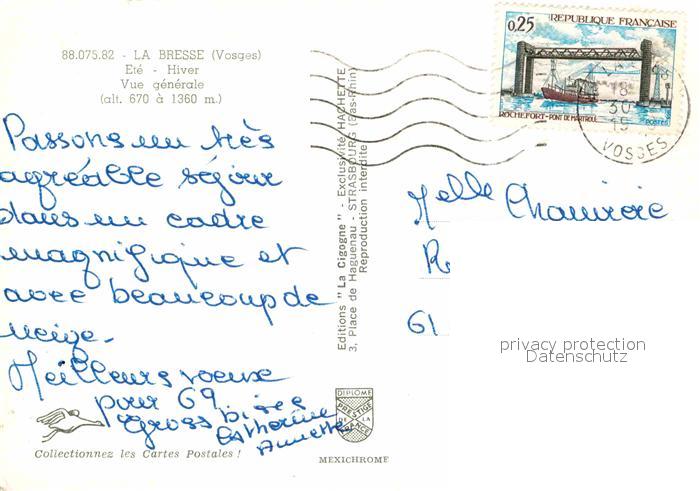 88.075.82 - LA BRESSE (Vosges)
Eté - Hiver
Vue générale
(alt. 670 à 1360 m.)
Passons un très
agréable séjour
dans un cadre
magnifique et
avec beaucoup de
neige.
Meilleurs voeux
pour 69
Gross bises
Catherine
Annette
Collectionnez les Cartes Postales !
Editions "La Cigogne" - Exclusivité HACHETTE
3, Place de Haguenau - STRASBOURG (Bas-Rhin)
Reproduction interdite
DIPLOME
PRESTIGE
DE LA
FRANCE
MEXICHROME
0,25 REPUBLIQUE FRANÇAISE
ROCHEFORT - PONT DE MARTROU
POSTES
18
30
19
VOSGES
Melle
R
61
privacy protection
Datenschutz